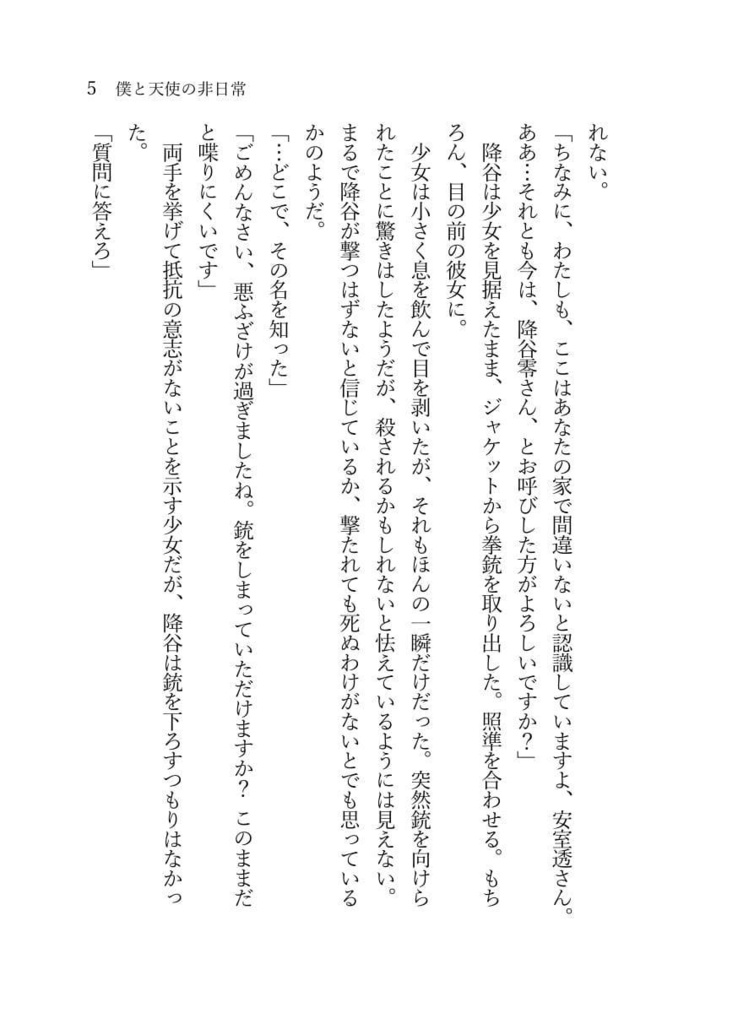 5 僕と天使の非日常
れない。
「ちなみに、わたしも、ここはあなたの家で間違いないと認識していますよ、安室透さん。
ああ…それとも今は、降谷零さん、とお呼びした方がよろしいですか？」
　降谷は少女を見据えたまま、ジャケットから拳銃を取り出した。照準を合わせる。もち
ろん、目の前の彼女に。
　少女は小さく息を飲んで目を剥いたが、それもほんの一瞬だけだった。突然銃を向けら
れたことに驚きはしたようだが、殺されるかもしれないと怯えているようには見えない。
まるで降谷が撃つはずないと信じているか、撃たれても死ぬわけがないとでも思っている
かのようだ。
「…どこで、その名を知った」
「ごめんなさい、悪ふざけが過ぎましたね。銃をしまっていただけますか？　このままだ
と喋りにくいです」
　両手を挙げて抵抗の意志がないことを示す少女だが、降谷は銃を下ろすつもりはなかっ
た。
「質問に答えろ」